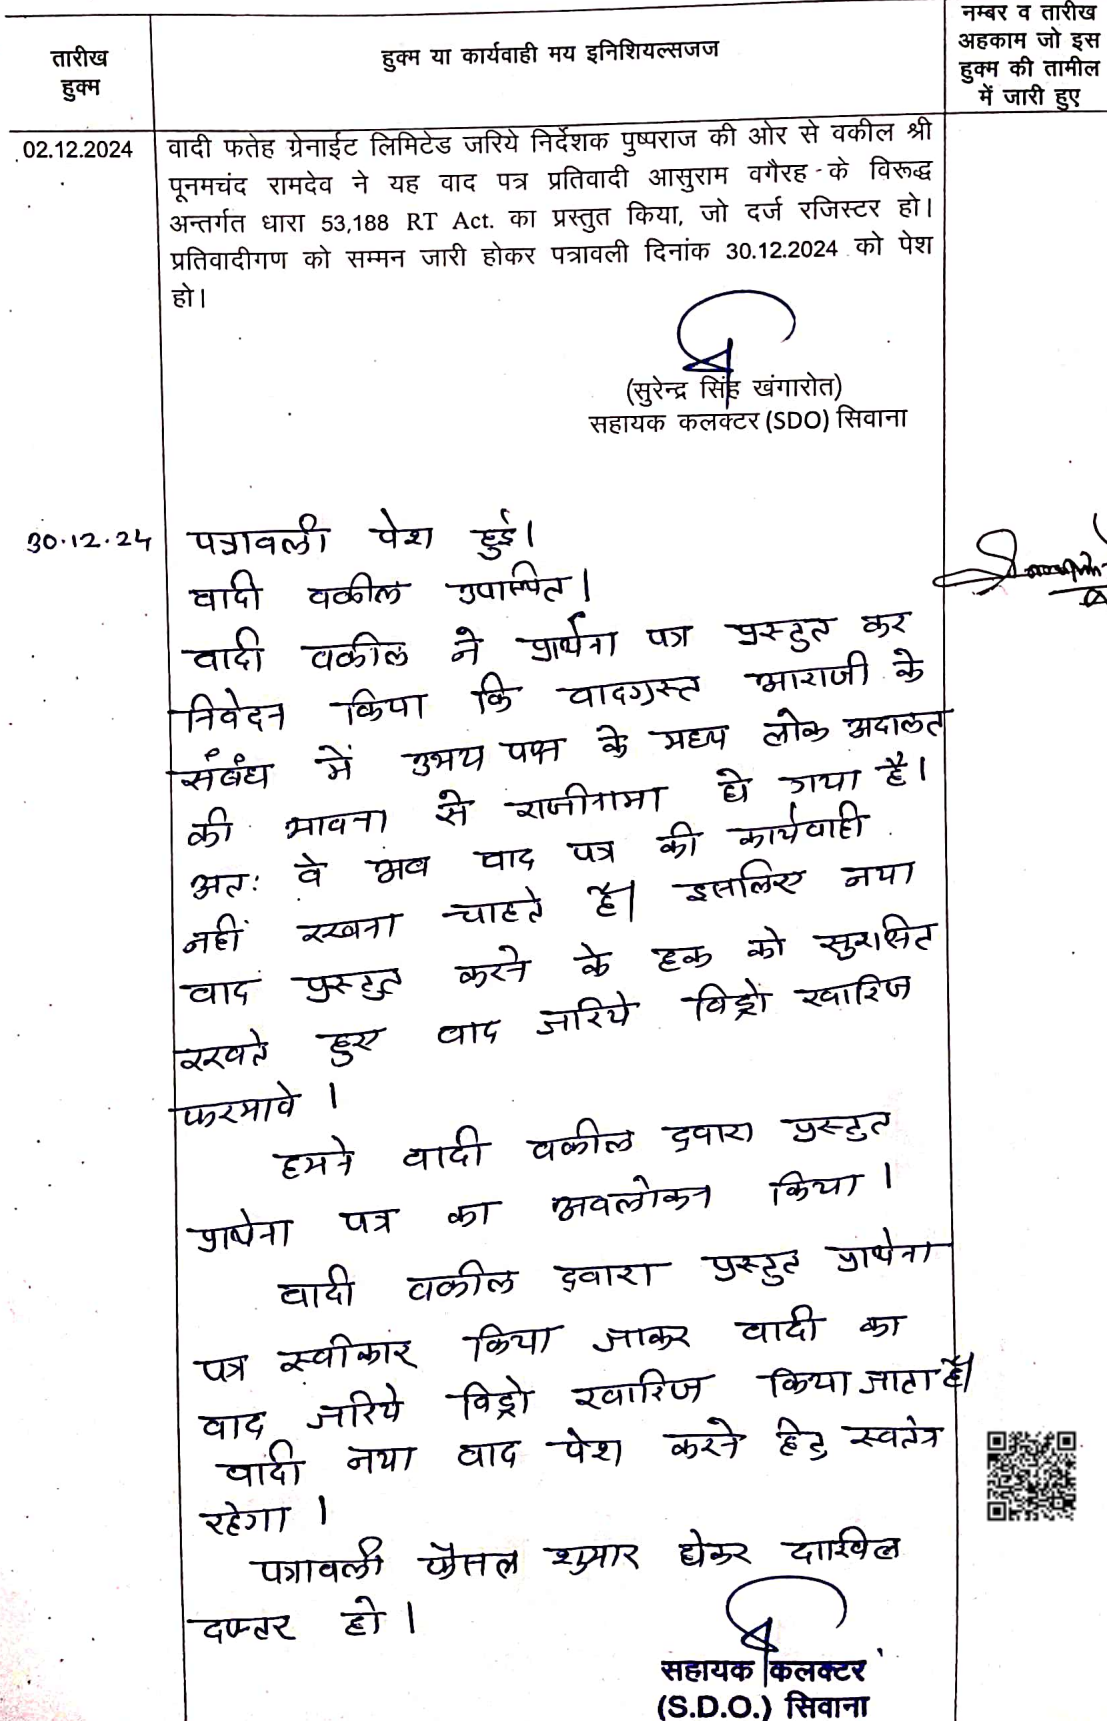 तारीख
हुक्म
हुक्म या कार्यवाही मय इनिशियल्सजज
नम्बर व तारीख
अहकाम जो इस
हुक्म की तामील
में जारी हुए
02.12.2024
वादी फतेह ग्रेनाईट लिमिटेड जरिये निर्देशक पुष्पराज की ओर से वकील श्री
पूनमचंद रामदेव ने यह वाद पत्र प्रतिवादी आसुराम वगैरह के विरूद्ध
अन्तर्गत धारा 53,188 RT Act. का प्रस्तुत किया, जो दर्ज रजिस्टर हो।
प्रतिवादीगण को सम्मन जारी होकर पत्रावली दिनांक 30.12.2024 को पेश
हो।
(सुरेन्द्र सिंह खंगारोत)
सहायक कलक्टर (SDO) सिवाना
30.12.24
पत्रावली पेश हुई।
वादी वकील उपस्थित।
वादी वकील ने प्रार्थना पत्र प्रस्तुत कर
निवेदन किया कि वादग्रस्त आराजी के
संबंध में उभय पक्ष के मध्य लोक अदालत
की भावना से राजीनामा हो गया है।
अतः वे अब वाद पत्र की कार्यवाही
नहीं रखना चाहते है। इसलिए नया
वाद प्रस्तुत करने के हक को सुरक्षित
रखते हुए वाद जरिये विड्रो खारिज
फरमावे।
हमने वादी वकील द्वारा प्रस्तुत
प्रार्थना पत्र का अवलोकन किया।
वादी वकील द्वारा प्रस्तुत प्रार्थना
पत्र स्वीकार किया जाकर वादी का
वाद जरिये विड्रो खारिज किया जाता है।
वादी नया वाद पेश करने हेतु स्वतंत्र
रहेगा।
पत्रावली फैसल शुमार होकर दाखिल
दफ्तर हो।
सहायक कलक्टर
(S.D.O.) सिवाना